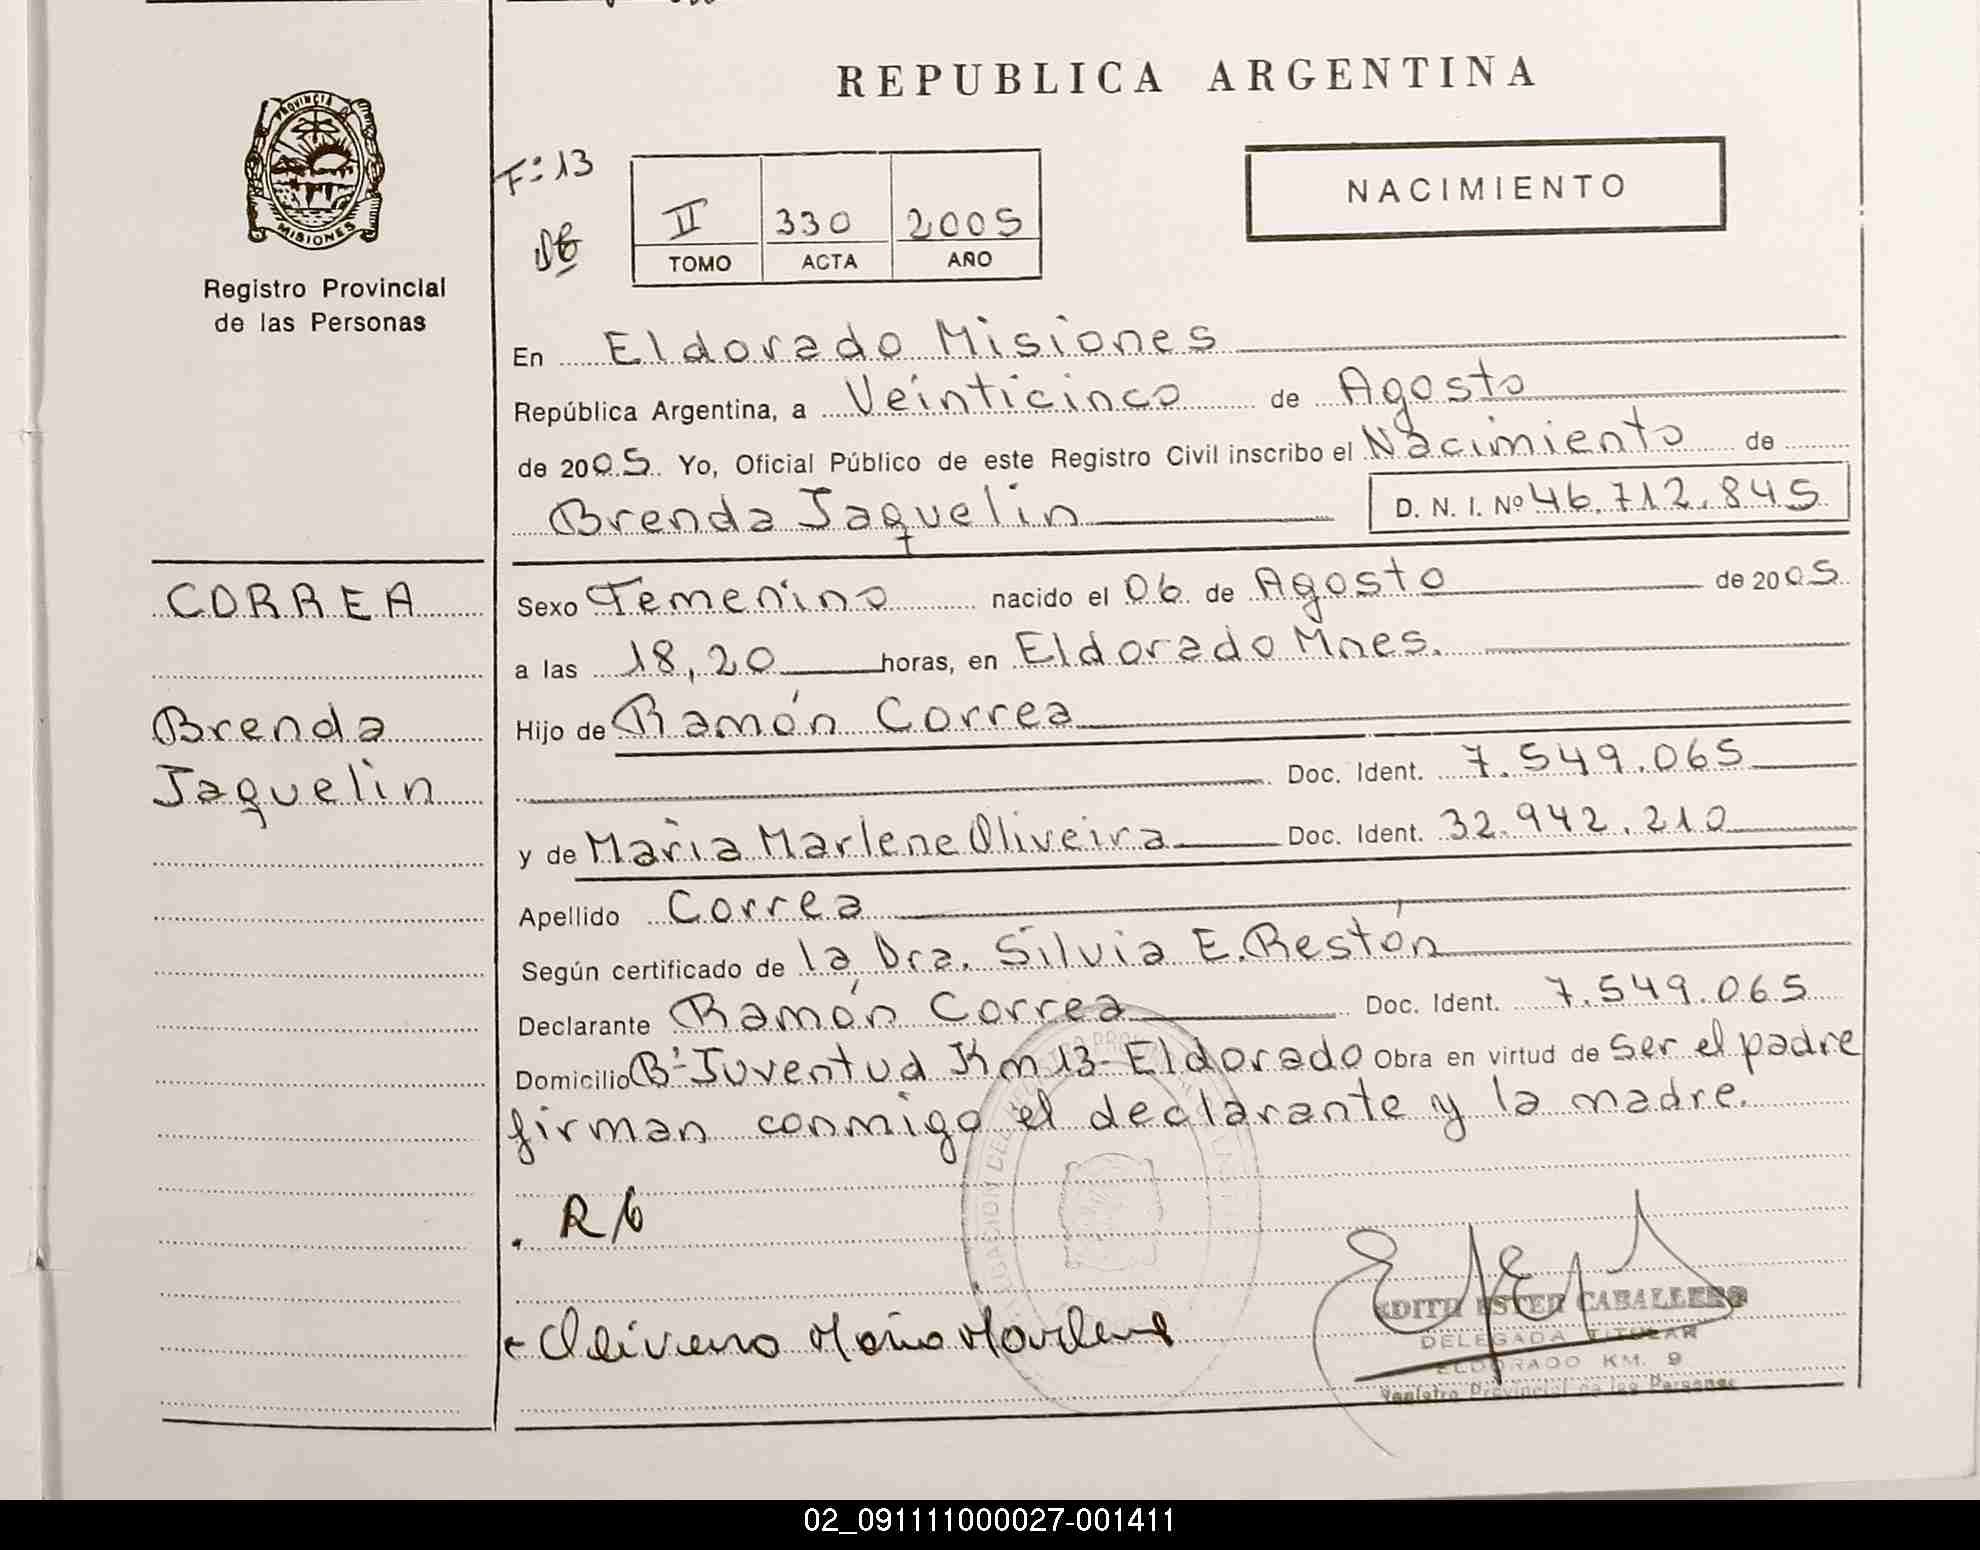 REPUBLICA ARGENTINA
PROVINCIA DE
MISIONES
Registro Provincial
de las Personas
F: 13
II 330 2005
TOMO ACTA AÑO
NACIMIENTO
En Eldorado Misiones
República Argentina, a Veinticinco de Agosto
de 2005. Yo, Oficial Público de este Registro Civil inscribo el Nacimiento de
Brenda Jaquelin D. N. I. Nº 46.712.845
CORREA
Brenda
Jaquelin
Sexo Femenino nacido el 06 de Agosto de 2005
a las 18,20 horas, en Eldorado Mnes.
Hijo de Ramón Correa
Doc. Ident. 7.549.065
y de Maria Marlene Oliveira Doc. Ident. 32.942.210
Apellido Correa
Según certificado de la Dra. Silvia E. Restón
Declarante Ramón Correa Doc. Ident. 7.549.065
Domicilio Bº Juventud Km 13- Eldorado Obra en virtud de ser el padre
firman conmigo el declarante y la madre.
EDITH ESTER CABALLERO
DELEGADA TITULAR
ELDORADO KM. 9
Registro Provincial de las Personas
02_091111000027-001411